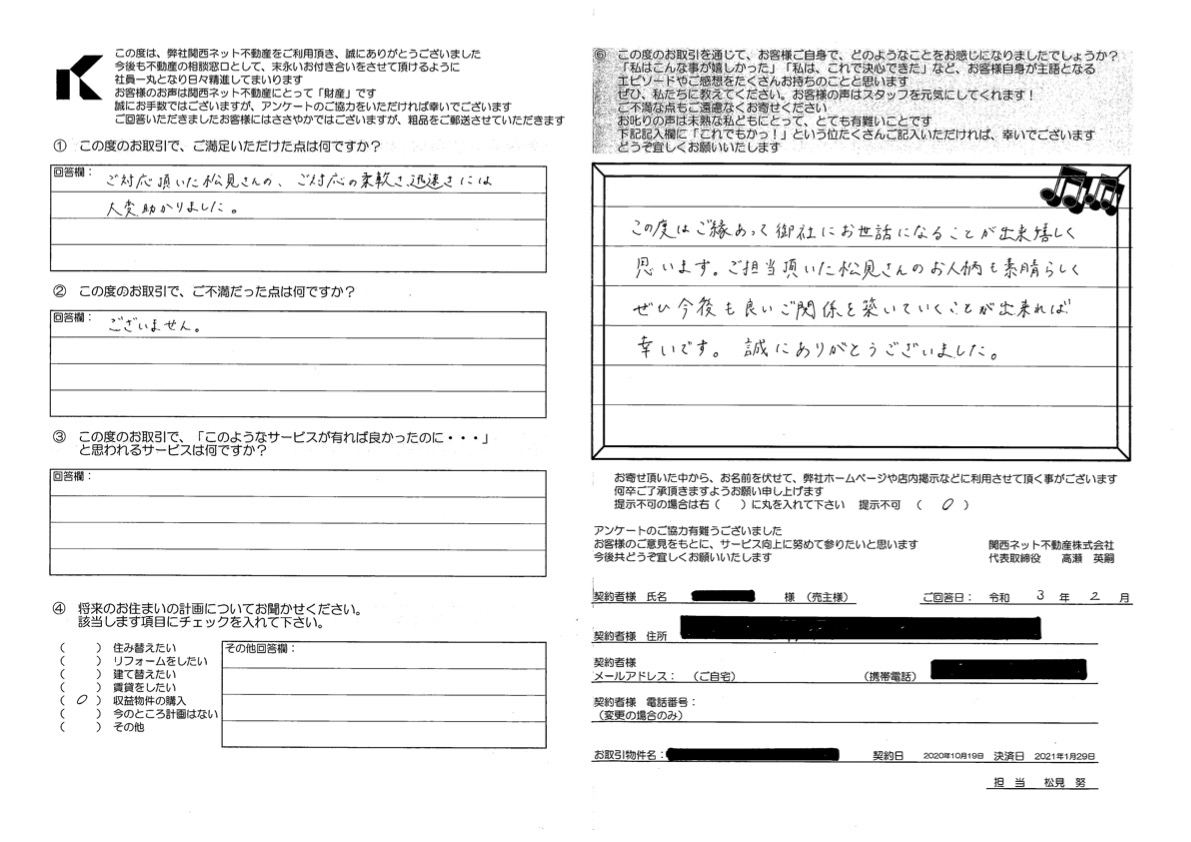 この度は、弊社関西ネット不動産をご利用頂き、誠にありがとうございました
今後も不動産の相談窓口として、末永いお付き合いをさせて頂けるように
社員一丸となり日々精進してまいります
お客様のお声は関西ネット不動産にとって「財産」です
誠にお手数ではございますが、アンケートのご協力をいただければ幸いでございます
ご回答いただきましたお客様にはささやかではございますが、粗品をご郵送させていただきます
① この度のお取引で、ご満足いただけた点は何ですか？
回答欄：
ご対応頂いた松見さんの、ご対応の柔軟さ迅速さには
大変助かりました。
② この度のお取引で、ご不満だった点は何ですか？
回答欄：
ございません。
③ この度のお取引で、「このようなサービスが有れば良かったのに・・・」
と思われるサービスは何ですか？
回答欄：
④ 将来のお住まいの計画についてお聞かせください。
該当します項目にチェックを入れて下さい。
（　　） 住み替えたい
（　　） リフォームをしたい
（　　） 建て替えたい
（　　） 賃貸をしたい
（ ０ ） 収益物件の購入
（　　） 今のところ計画はない
（　　） その他
その他回答欄：
⑥ この度のお取引を通じて、お客様ご自身で、どのようなことをお感じになりましたでしょうか？
「私はこんな事が嬉しかった」「私は、これで決心できた」など、お客様自身が主語となる
エピソードやご感想をたくさんお持ちのことと思います
ぜひ、私たちに教えてください。お客様の声はスタッフを元気にしてくれます！
ご不満な点もご遠慮なくお寄せください
お叱りの声は未熟な私どもにとって、とても有難いことです
下記記入欄に「これでもかっ！」という位たくさんご記入いただければ、幸いでございます
どうぞ宜しくお願いいたします
この度はご縁あって御社にお世話になることが出来嬉しく
思います。ご担当頂いた松見さんのお人柄も素晴らしく
ぜひ今後も良いご関係を築いていくことが出来れば
幸いです。 誠にありがとうございました。
お寄せ頂いた中から、お名前を伏せて、弊社ホームページや店内掲示などに利用させて頂く事がございます
何卒ご了承頂きますようお願い申し上げます
提示不可の場合は右（　　）に丸を入れて下さい　提示不可　（ ０ ）
アンケートのご協力有難うございました
お客様のご意見をもとに、サービス向上に努めて参りたいと思います
今後共どうぞ宜しくお願いいたします
関西ネット不動産株式会社
代表取締役　高瀬　英嗣
契約者様　氏名　　様　（売主様）　ご回答日：　令和　3　年　2　月
契約者様　住所
契約者様
メールアドレス：　（ご自宅）　（携帯電話）
契約者様　電話番号：
（変更の場合のみ）
お取引物件名：　契約日　2020年10月19日　決済日　2021年1月29日
担　当　松見　努